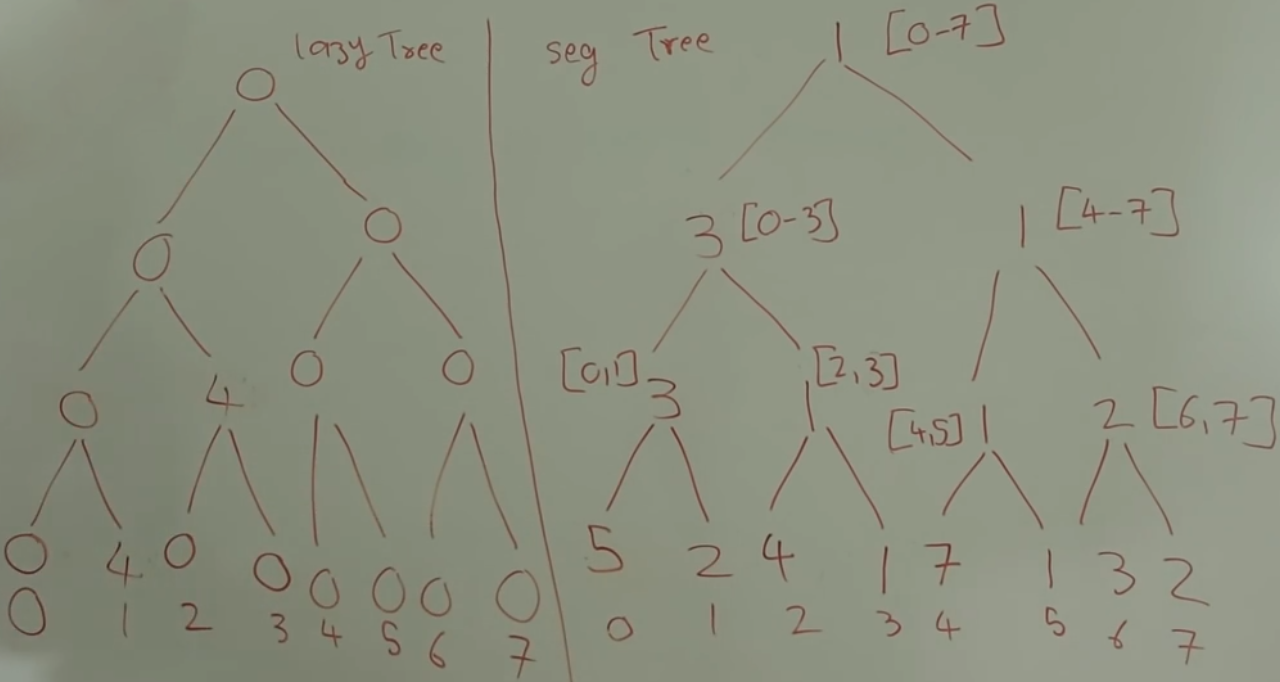 lazy Tree
0
0 0
0 4 0 0
0 4 0 0 0 0 0 0
0 1 2 3 4 5 6 7
seg Tree
1 [0-7]
3 [0-3] 1 [4-7]
[0,1] 3 1 [2,3] [4,5] 1 2 [6,7]
5 2 4 1 7 1 3 2
0 1 2 3 4 5 6 7